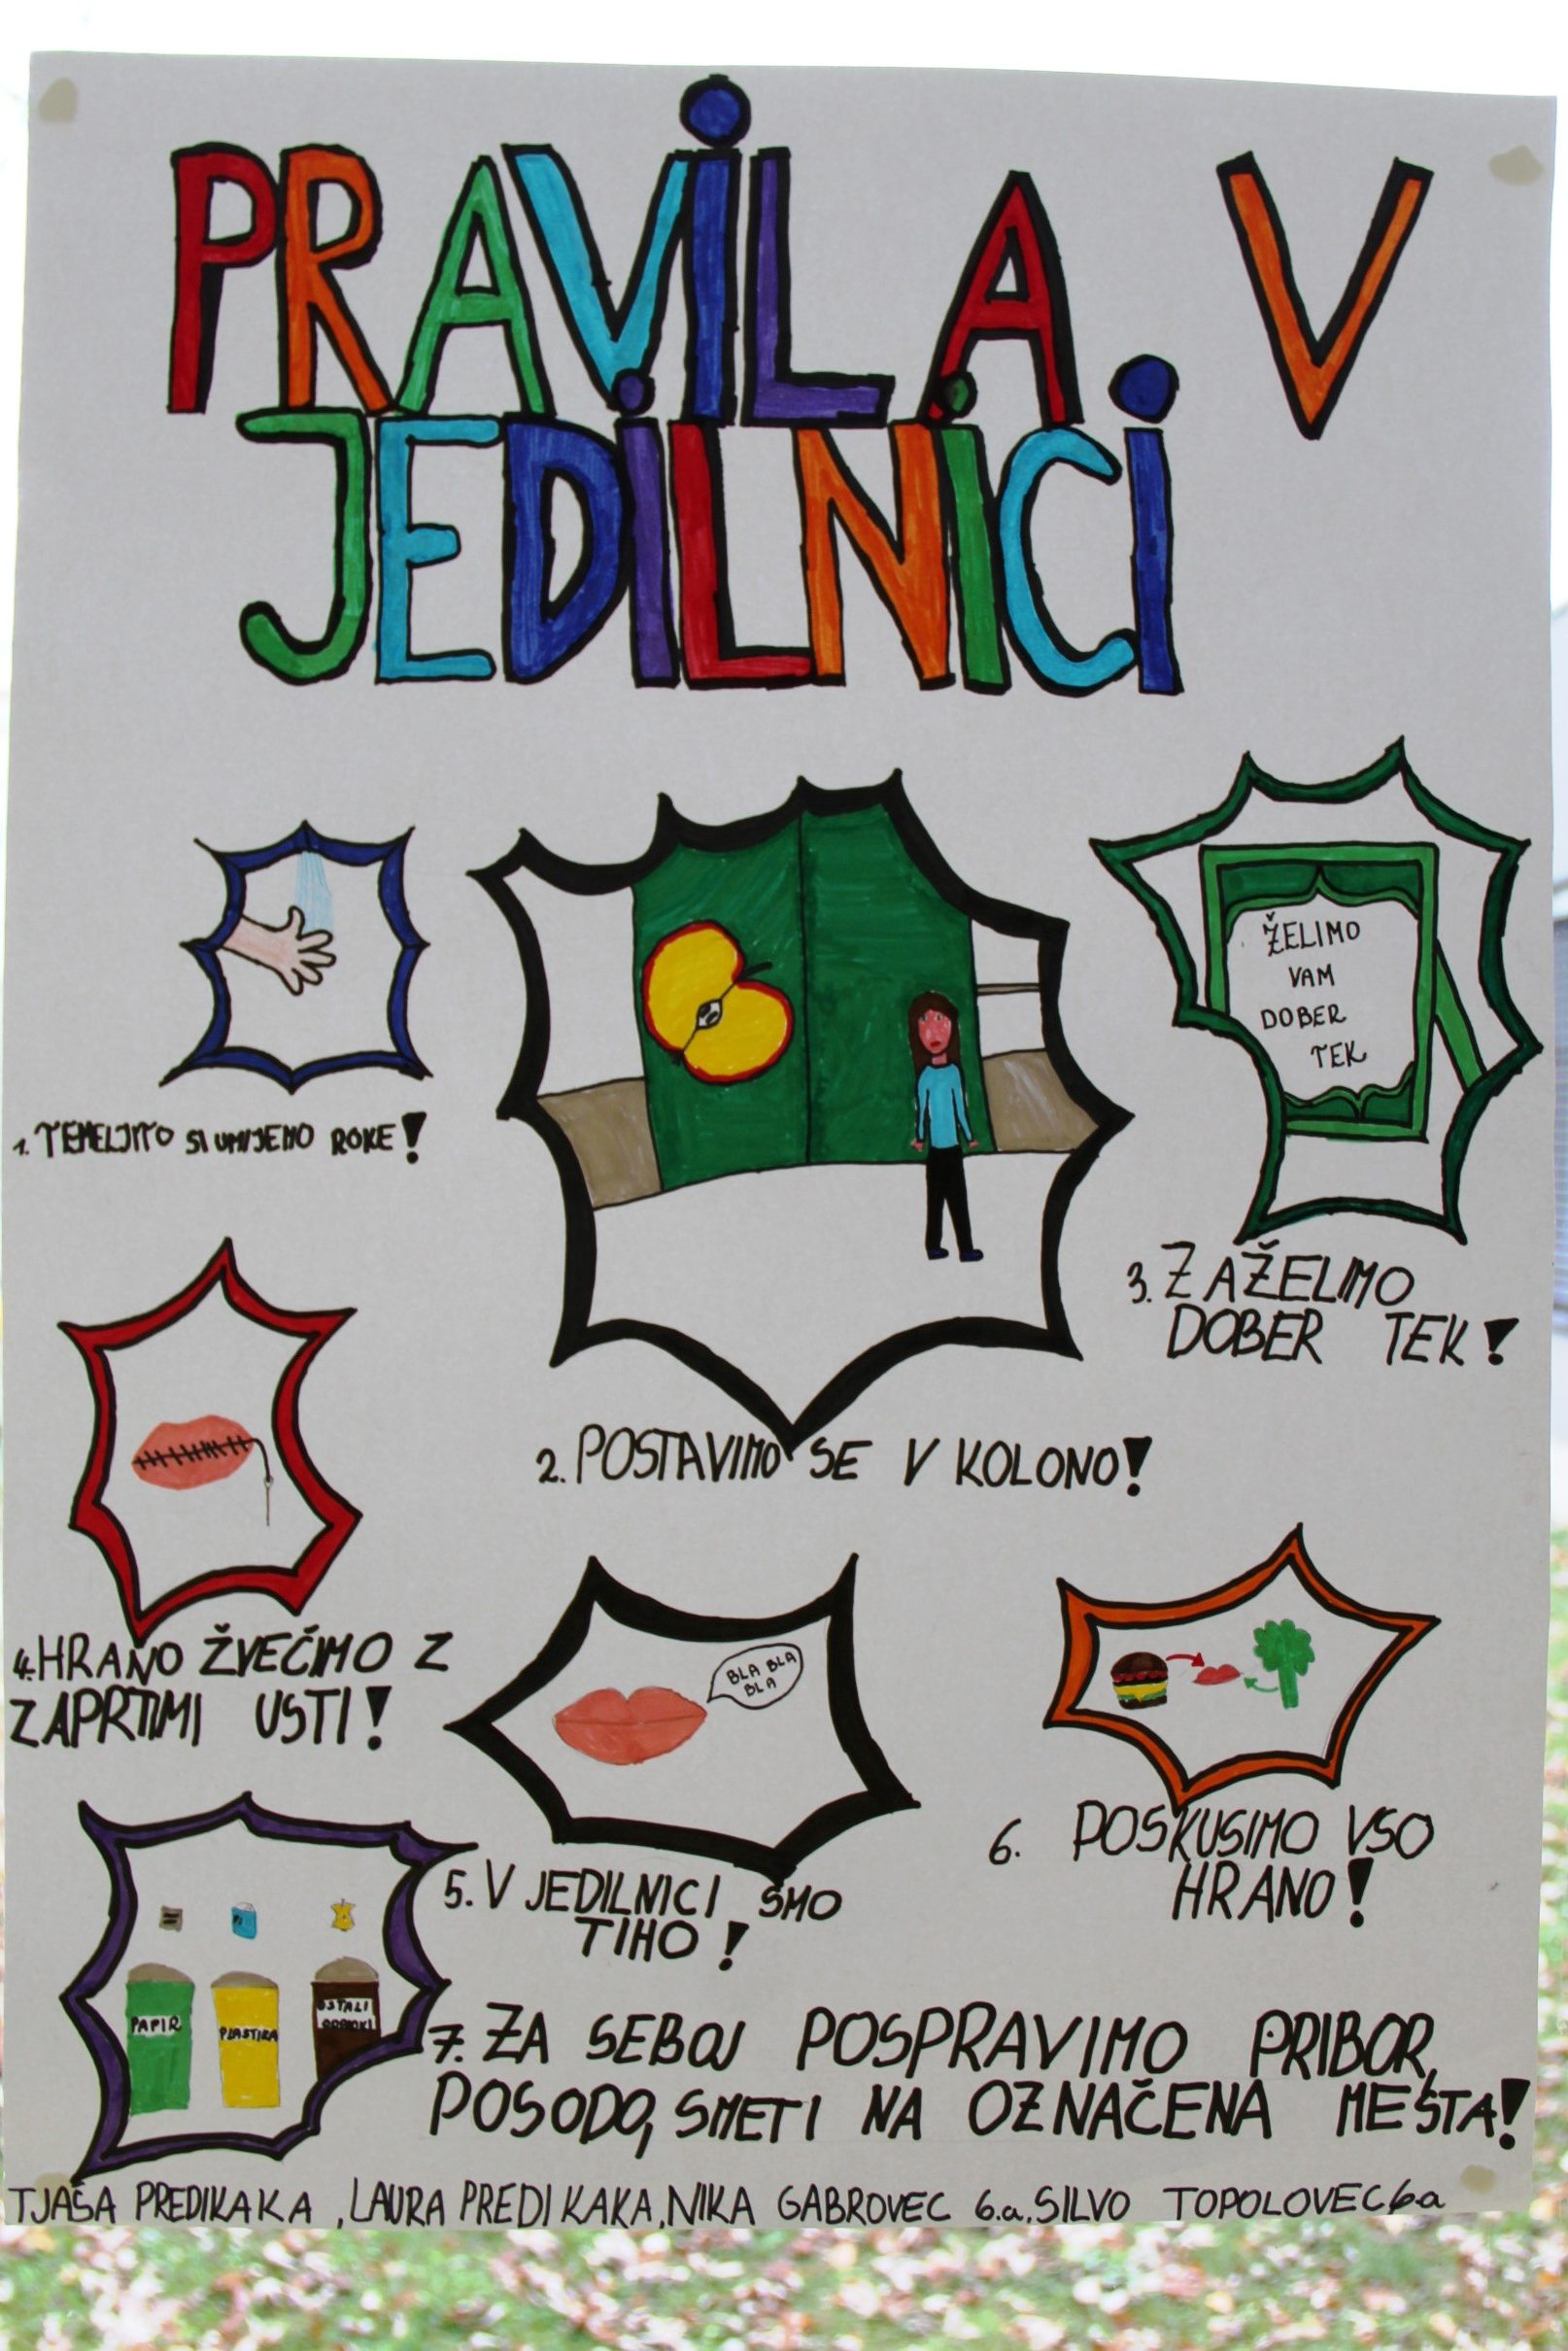 PRAVILA V
JEDILNICI
ŽELIMO
VAM
DOBER
TEK
1. TEMELJITO SI UMIJEMO ROKE!
3. ZAŽELIMO
DOBER TEK!
2. POSTAVIMO SE V KOLONO!
4. HRANO ŽVEČIMO Z
ZAPRTIMI USTI!
BLA BLA
BLA
5. V JEDILNICI SMO
TIHO!
6. POSKUSIMO VSO
HRANO!
PAPIR
PLASTIKA
OSTALI
ODPADKI
7. ZA SEBOJ POSPRAVIMO PRIBOR,
POSODO, SMETI NA OZNAČENA MESTA!
TJAŠA PREDIKAKA, LAURA PREDIKAKA, NIKA GABROVEC 6.a, SILVO TOPOLOVEC 6.a